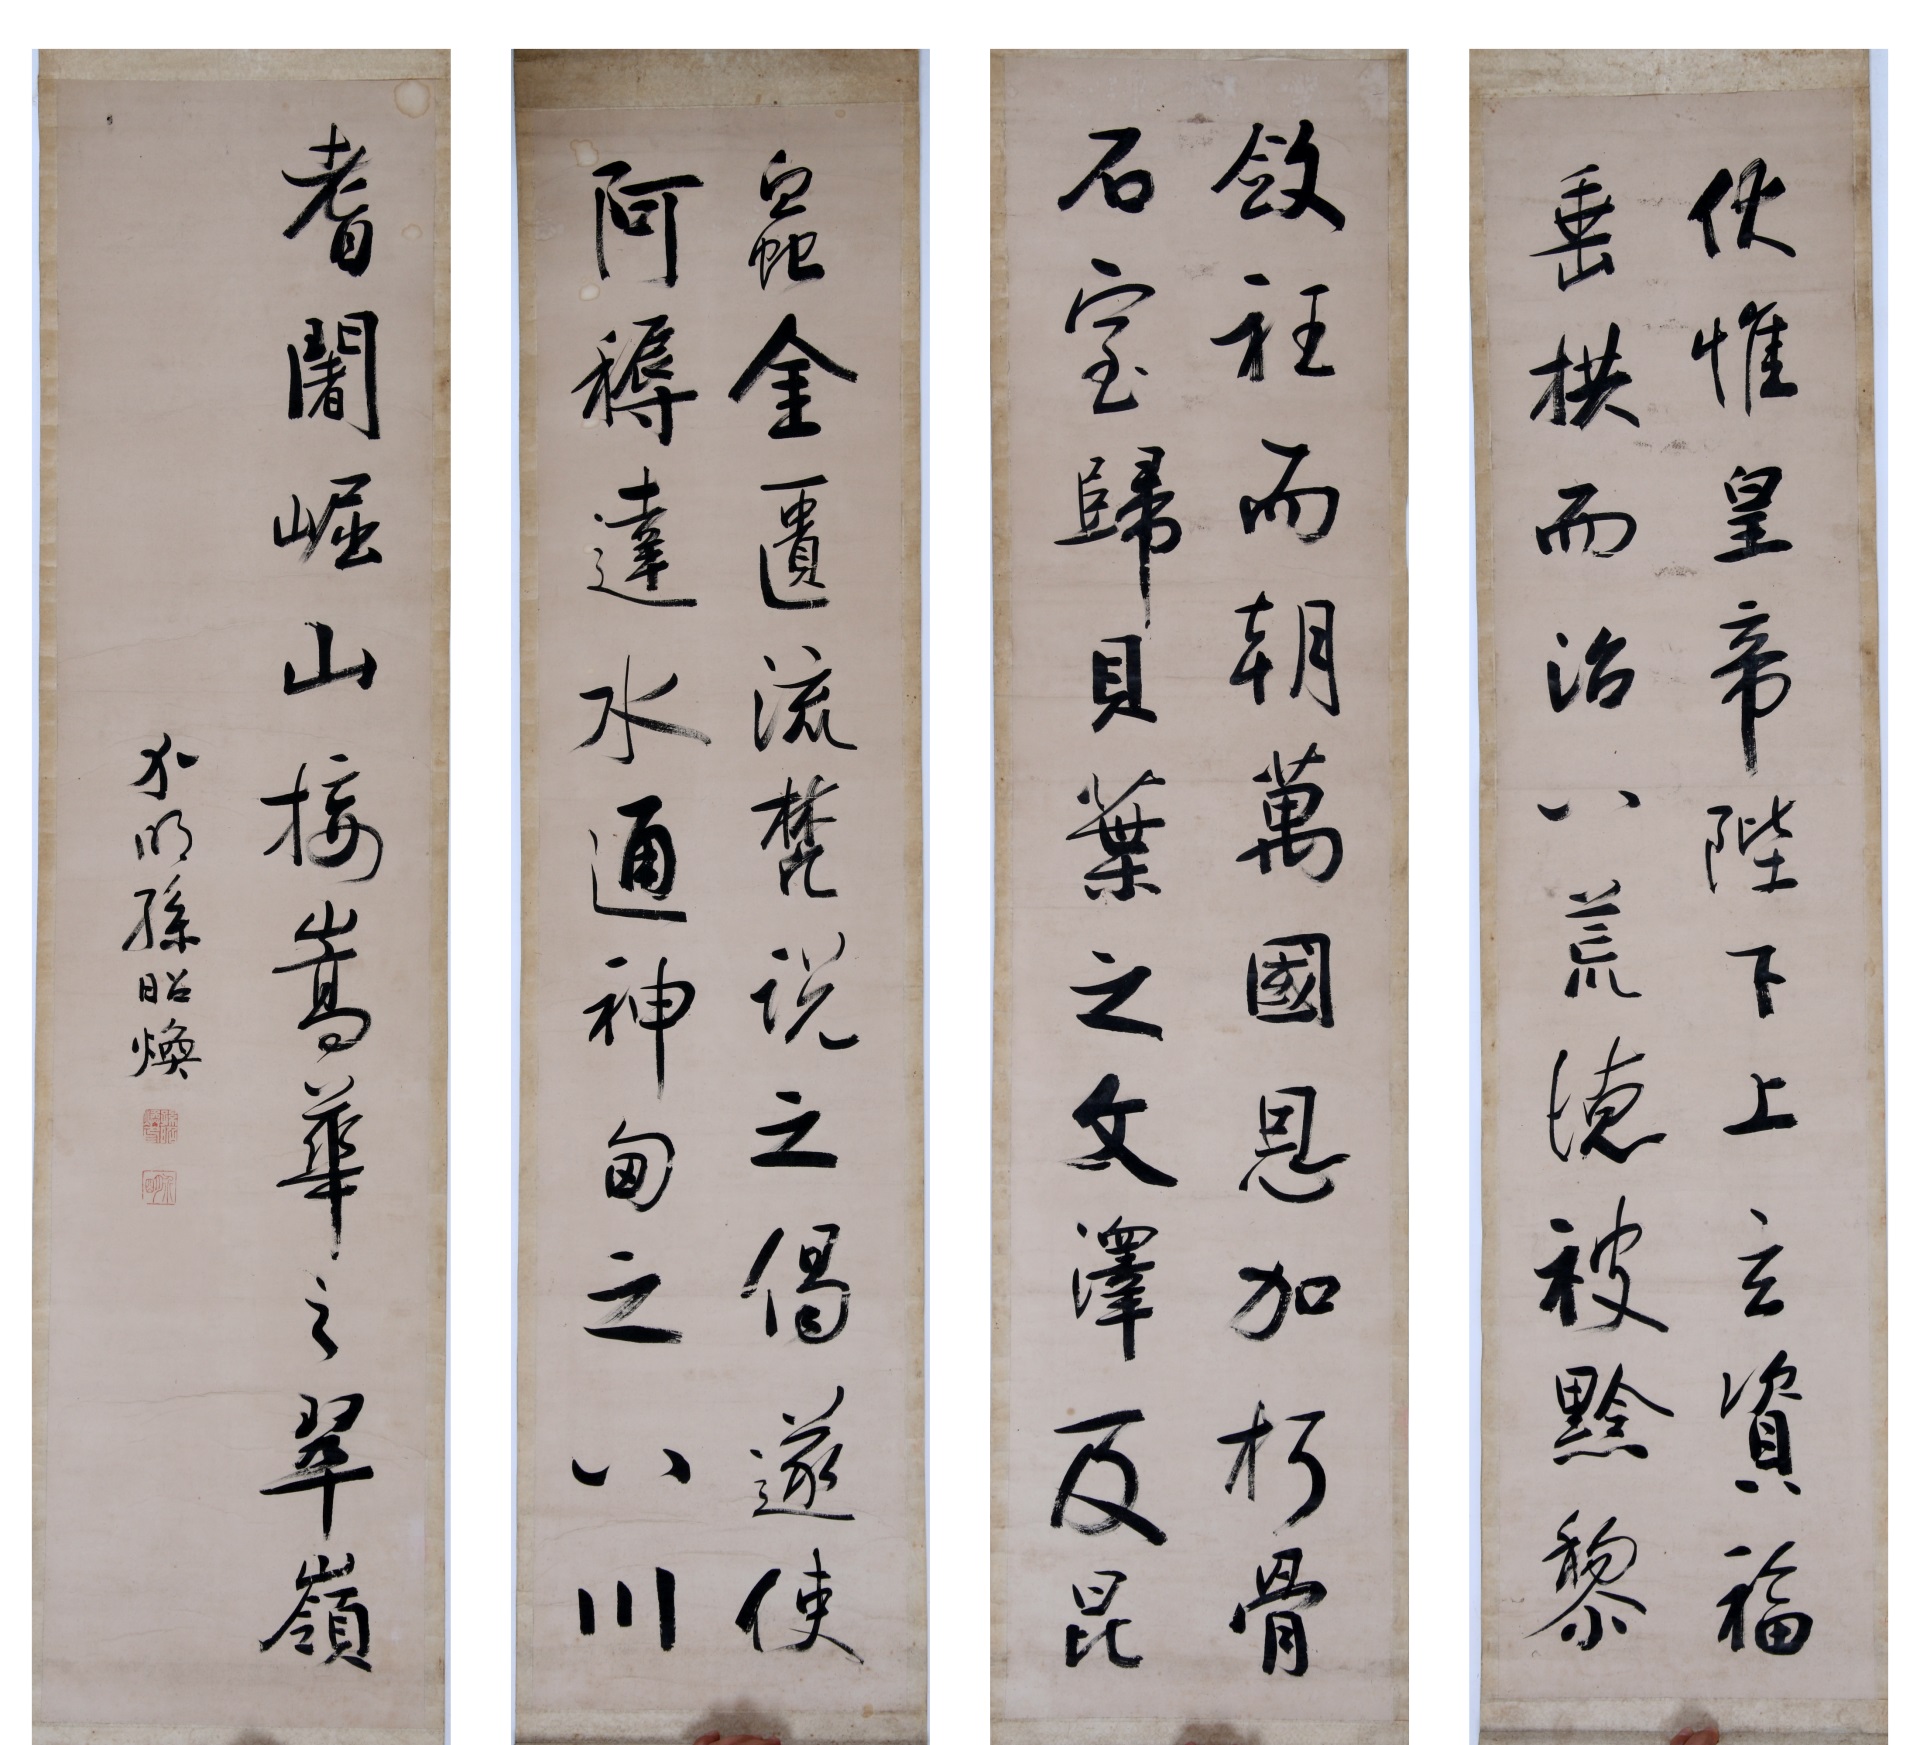 伏惟皇帝陛下上玄資福
垂拱而治八荒德被黔黎
斂衽而朝萬國恩加朽骨
石室歸貝葉之文澤及昆
蟲金匱流梵說之偈遂使
阿耨達水通神甸之八川
耆闍崛山接嵩華之翠嶺
明孫昭煥